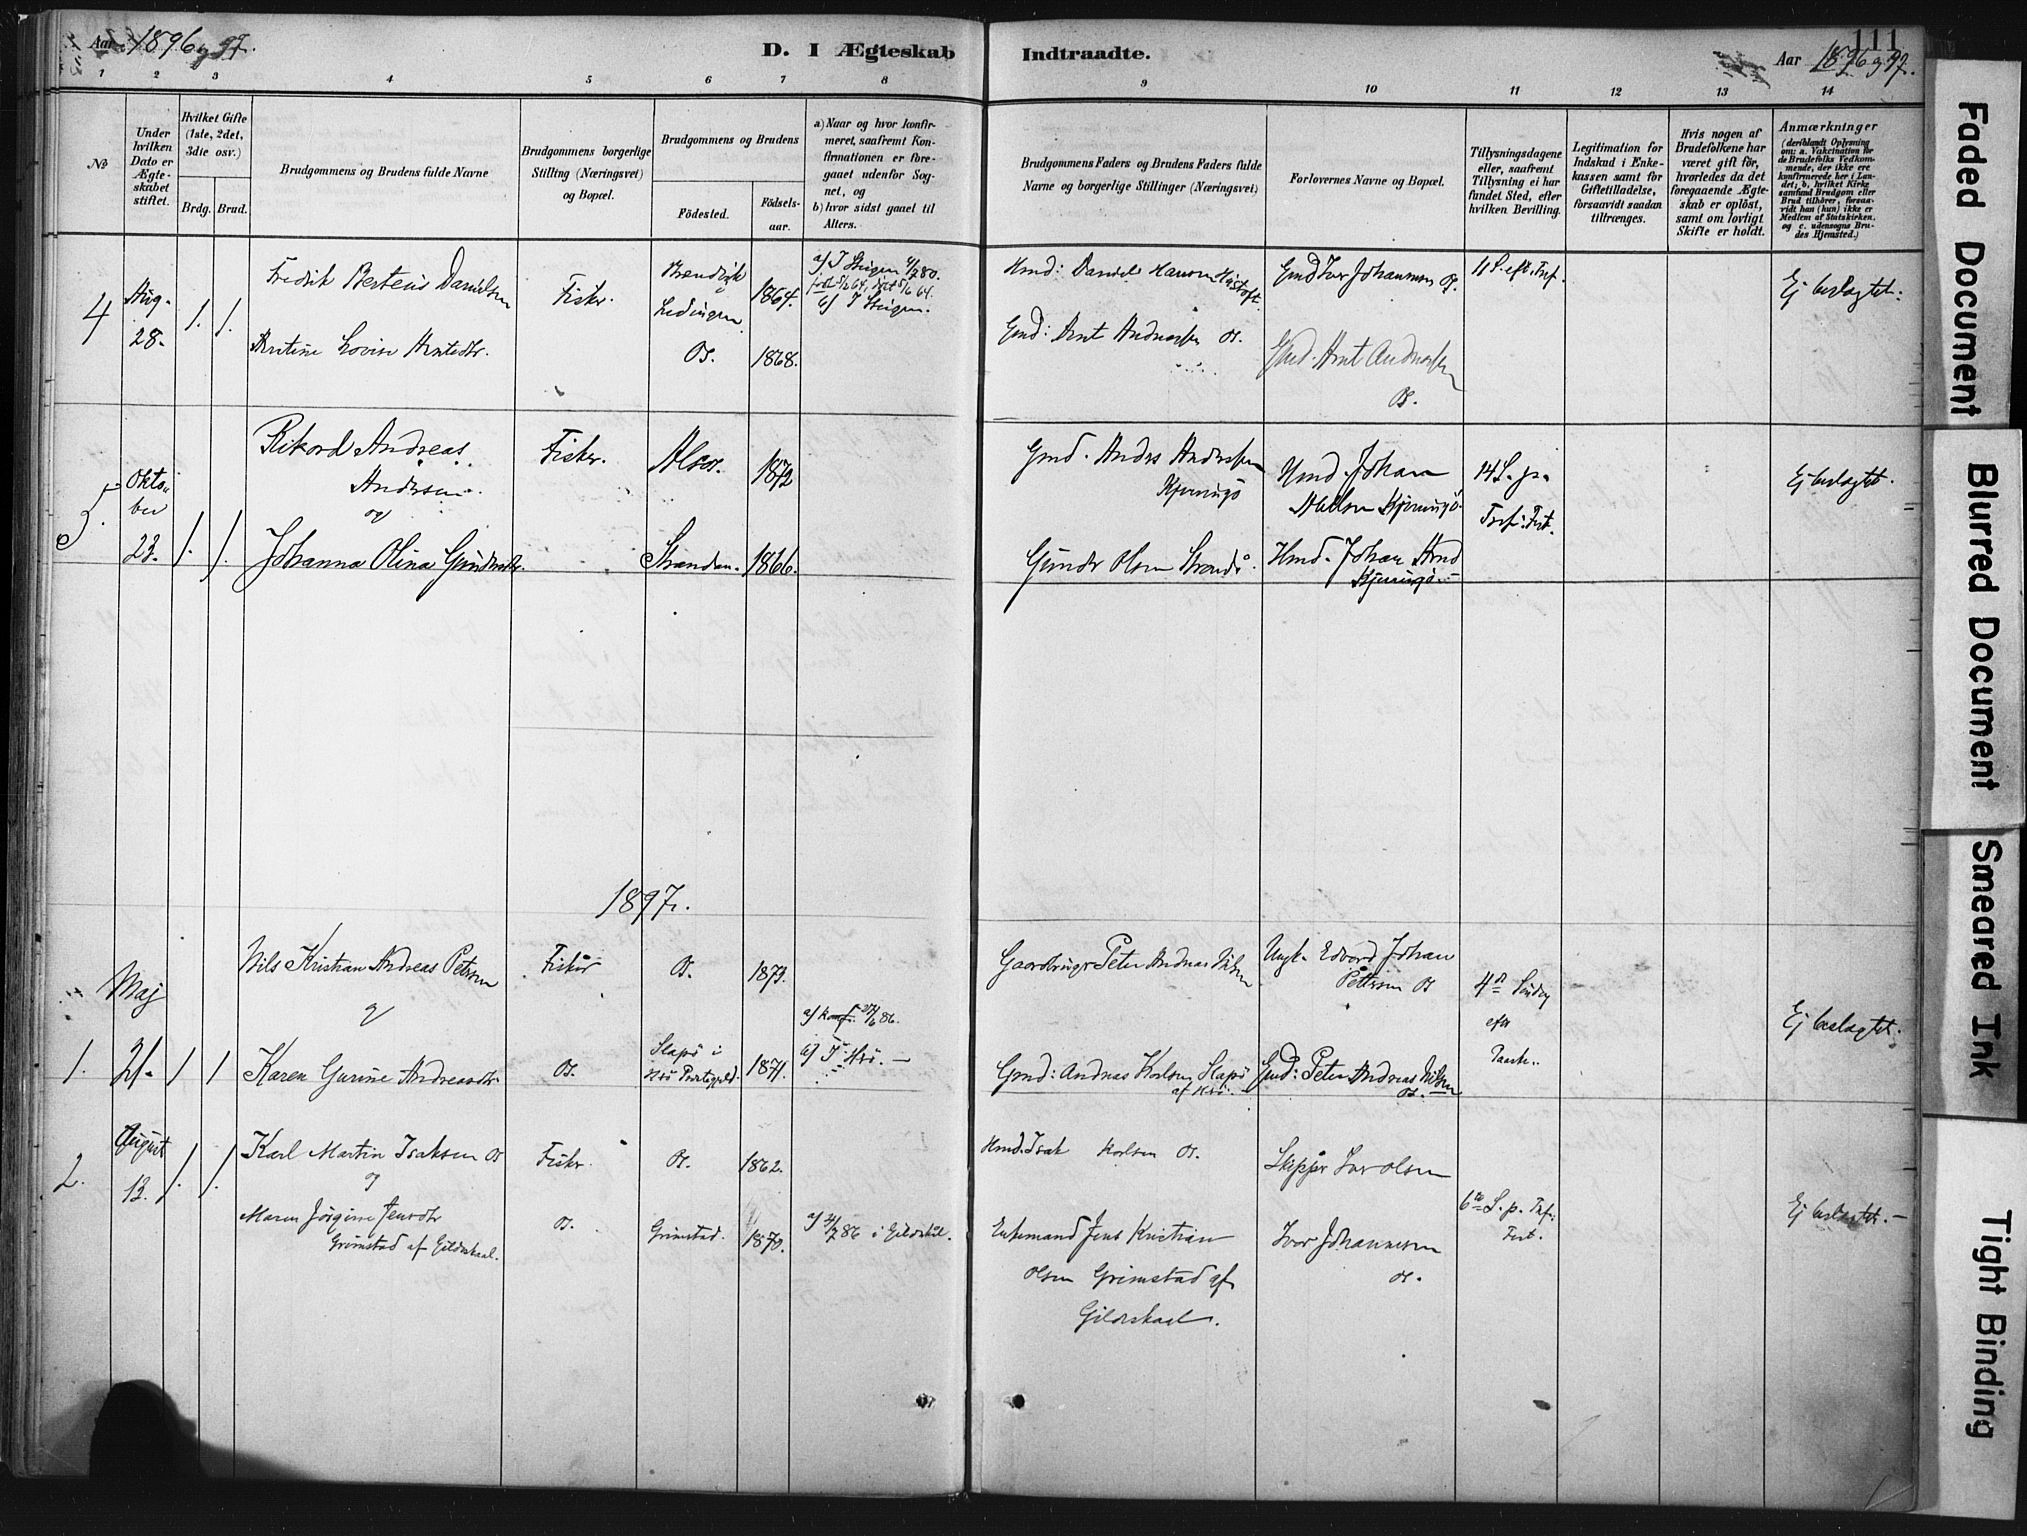 Aar 1896 og 97.
D. I Ægteskab Indtraadte.
Aar 1896 og 97.
111
1 2 3 4 5 6 7 8 9 10 11 12 13 14
No
Under hvilken Dato er Ægteskabet stiftet.
Hvilket Gifte (1ste, 2det, 3die osv.)
Brdg. Brud.
Brudgommens og Brudens fulde Navne
Brudgommens borgerlige Stilling (Næringsvei) og Bopæl.
Brudgommens og Brudens
Födested.
Födselsaar.
a) Naar og hvor konfirmeret, saafremt Konfirmationen er foregaaet udenfor Sognet, og
b) hvor sidst gaaet til Alters.
Brudgommens Faders og Brudens Faders fulde Navne og borgerlige Stillinger (Næringsvei)
Forlovernes Navne og Bopæl.
Tillysningsdagene eller, saafremt Tillysning ei har fundet Sted, efter hvilken Bevilling.
Legitimation for Indskud i Enkekassen samt for Giftetilladelse, forsaavidt saadan tiltrænges.
Hvis nogen af Brudefolkene har været gift för, hvorledes da det foregaaende Ægteskab er oplöst, samt om lovligt Skifte er holdt.
Anmærkninger
(deriblandt Oplysning om: a. Vakcination for de Brudefolks Vedkommende, der ikke ere konfirmerede her i Landet; b. hvilket Kirkesamfund Brudgom eller Brud tilhörer, forsaavidt han (hun) ikke er Medlem af Statskirken, og c. udensogns Brudes Hjemsted.)
4 Aug. 28. 1. 1.
Fredrik Berteus Danielsen
Fisker.
Ledingen
1864.
Hmd: Daniel Hansen
Gmd Iver Johannesen Os.
11 S. eft. Tref.
Ej beslægtet.
Lovise Arntsdtr.
Os. 1868.
Gmd: Arnt Andreassen Os.
Gmd. Arnt Andreassen
Os.
5. Oktober 23. 1. 1.
Rikord Andreas
Andersen
og
Fisker. Alsos. 1872
Gmd. Anders Andersen
Kjerringö
Hmd. Johan
Kjerringö.
14 S. p.
Tref. Fest.
Ej beslægtet.
Johanna Olina Gundersdtr.
Stranden. 1866.
Gunder Olsen Strandå.
Hmd. Johan
Kjerringö.
1897.
Maj
Nils Kristian Andreas Petersen
og
Fisker Os. 1873.
Gaardbruger Peter Andreas Nilsen
Ungk. Edvard Johan
Pettersen Os
4de Söndag
efter
Paaske.
Ej beslægtet.
1. 21. 1 1
Karen Gurine Andreasdtr.
Os. Slapö i
1871.
a) Konf. 27/6 86.
Gmd: Andreas Karlsen Slapö
Gmd: Peter Andreas Nilsen
Os.
2. August 13. 1. 1.
Karl Martin Isaksen Os
og
Fisker. Os. 1862.
Hmd. Isak Karlsen Os.
Skipper Iver Olsen
6te S. p. Tref.
Fest.
Ej beslægtet.
Maren Jörgine Jensdtr
Grimstad af Gildeskaal.
Os. Grimstad. 1870.
i Gildeskål.
Enkemand Jens Kristian
Olsen Grimstad af
Gildeskaal.
Iver Johannesen
Os.
Faded Document
Blurred Document
Smeared Ink
Tight Binding